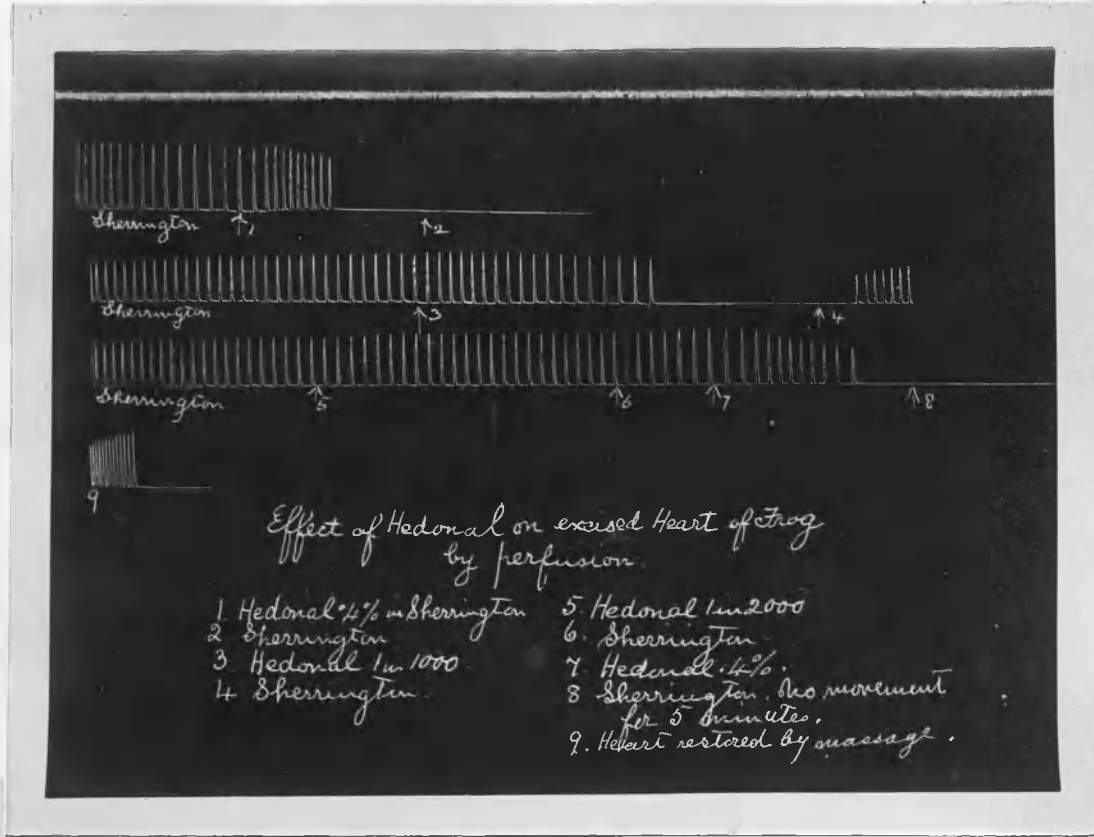 Sherrington ↑1 ↑2
Sherrington ↑3 ↑4
Sherrington ↑5 ↑6 ↑7 ↑8
9
Effect of Hedonal on excised Heart of Frog
by perfusion.
1 Hedonal ·4% in Sherrington
2 Sherrington
3 Hedonal 1 in 1000
4 Sherrington.
5. Hedonal 1 in 2000
6. Sherrington
7 Hedonal ·4%.
8 Sherrington. No movement
for 5 minutes.
9. Heart restored by massage.